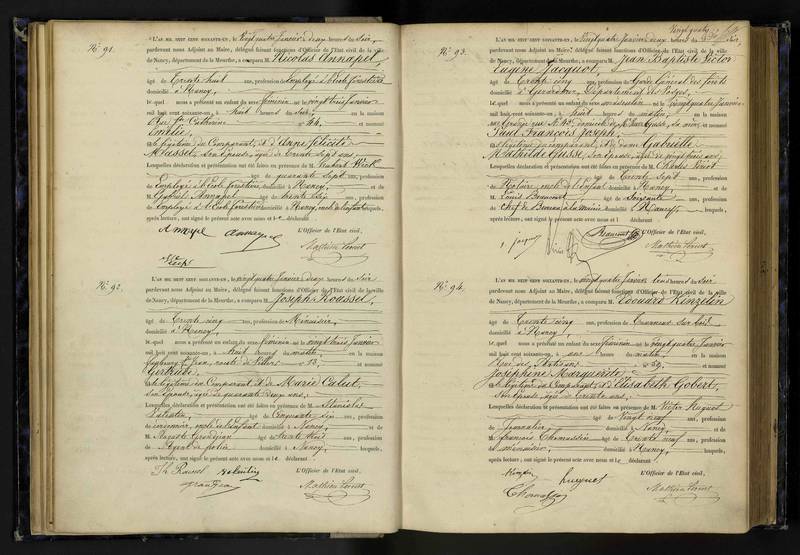 N° 91.
L'AN MIL HUIT CENT SOIXANTE-UN, le vingt quatre Janvier à deux heures du soir,
pardevant nous Adjoint au Maire, délégué faisant fonctions d'Officier de l'Etat civil de la ville
de Nancy, département de la Meurthe, a comparu M. Nicolas Annapel,
âgé de Trente huit ans, profession d'Employé à l'école forestière
domicilié à Nancy,
lequel nous a présenté un enfant du sexe féminin né le vingt trois Janvier
mil huit cent soixante-un, à huit heures du soir, en la maison
rue Ste Catherine n° 44, et nommé
Emélie,
fille légitime du Comparant, et d'Anne félicité
Masset, son épouse, âgée de Trente Sept ans,
Lesquelles déclaration et présentation ont été faites en présence de M.
âgé de quarante Sept ans, profession
d'Employé à l'école forestière domicilié à Nancy, et de
M. Gabriel Annapel âgé de trente six ans, profession
d'Employé à l'école forestière domicilié à Nancy, oncle de l'enfant lesquels,
après lecture, ont signé le présent acte avec nous et le déclarant
L'Officier de l'Etat civil,
N° 92.
L'AN MIL HUIT CENT SOIXANTE-UN, le vingt quatre Janvier deux heures du soir
pardevant nous Adjoint au Maire, délégué faisant fonctions d'Officier de l'Etat civil de la ville
de Nancy, département de la Meurthe, a comparu M. Joseph Roussel,
âgé de Trente cinq ans, profession de Menuisier,
domicilié à Nancy,
lequel nous a présenté un enfant du sexe féminin né le vingt trois Janvier
mil huit cent soixante-un, à huit heures du matin, en la maison
faubourg St Jean, route de Villers n° 13, et nommé
Gertrude,
fille légitime du Comparant et de Marie
son épouse, âgée de quarante deux ans,
Lesquelles déclaration et présentation ont été faites en présence de M. Stanislas
Valentin, âgé de Cinquante six ans, profession
de cordonnier, oncle de l'enfant domicilié à Nancy, et de
M. Auguste âgé de trente huit ans, profession
d'Agent de police domicilié à Nancy, lesquels,
après lecture, ont signé le présent acte avec nous et le déclarant
L'Officier de l'Etat civil,
N° 93.
L'AN MIL HUIT CENT SOIXANTE-UN, le vingt quatre Janvier deux heures du soir,
pardevant nous Adjoint au Maire, délégué faisant fonctions d'Officier de l'Etat civil de la ville
de Nancy, département de la Meurthe, a comparu M. Jean Baptiste Victor
Eugène Jacquot,
âgé de Trente cinq ans, profession de Garde Général des forêts
domicilié à Gérardmer, Département des Vosges,
lequel nous a présenté un enfant du sexe masculin né le vingt quatre Janvier
mil huit cent soixante-un, à huit heures du matin, en la maison
et nommé
Paul François Joseph,
fils légitime du comparant, et de dame Gabrielle
Mathilde Gusse, son épouse, âgée de vingt trois ans,
Lesquelles déclaration et présentation ont été faites en présence de M. Charles
âgé de Trente Sept ans, profession
de Notaire, oncle de l'enfant domicilié à Nancy, et de
M. Louis Beaumont âgé de Soixante ans, profession
de Chef de Bureau à la mairie domicilié à Nancy, lesquels,
après lecture, ont signé le présent acte avec nous et le déclarant
L'Officier de l'Etat civil,
N° 94.
L'AN MIL HUIT CENT SOIXANTE-UN, le vingt quatre Janvier trois heures du soir
pardevant nous Adjoint au Maire, délégué faisant fonctions d'Officier de l'Etat civil de la ville
de Nancy, département de la Meurthe, a comparu M. Edouard Kinzelin
âgé de Trente cinq ans, profession de Tourneur sur bois
domicilié à Nancy,
lequel nous a présenté un enfant du sexe féminin né le vingt quatre Janvier
mil huit cent soixante-un, à une heure du matin, en la maison
n° 39, et nommé
Joséphine Marguerite,
fille légitime du Comparant, et d'Elisabeth Gobert,
son épouse, âgée de Trente ans,
Lesquelles déclaration et présentation ont été faites en présence de M. Victor Huguet
âgé de vingt neuf ans, profession
de Journalier domicilié à Nancy, et de
M. françois Thomassin âgé de Trente neuf ans, profession
de Menuisier, domicilié à Nancy, lesquels,
après lecture, ont signé le présent acte avec nous et le déclarant
L'Officier de l'Etat civil,